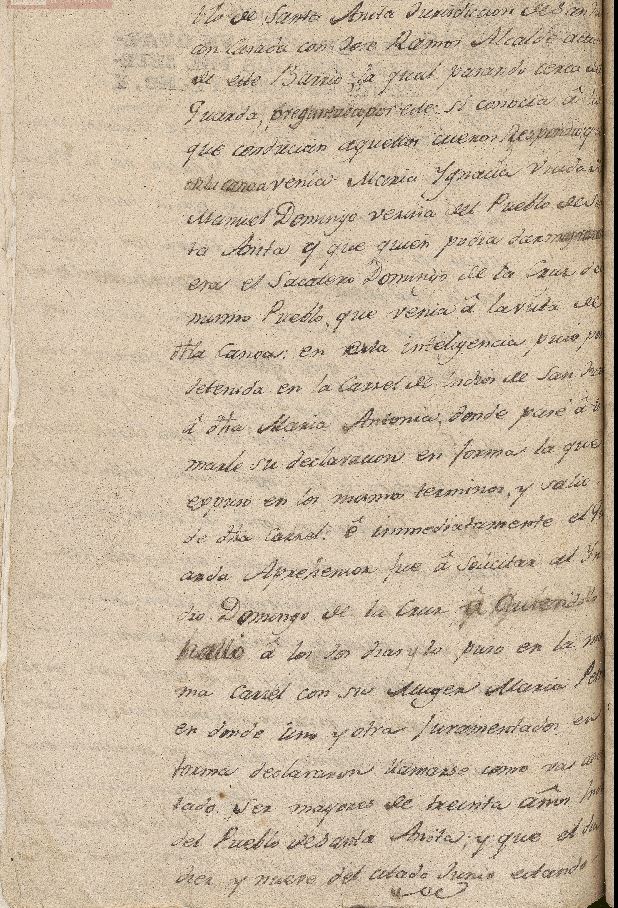 blo de Santa Anita Jurisdiccion de San
casada con Jose Ramos Alcalde
de este Barrio, la qual parando cerca
Guarda, preguntada por este si conocia â
que conducian aquellos cueros. Respondio q
en la canoa venia Maria Ygnacia Viuda d
Manuel Domingo vecina del Pueblo de S
ta Anita y que quien podia dar
era el Sacatero Domingo de la Cruz de
mismo Pueblo, que venia â la vista de
dha Canoa: en esta inteligencia puso,
detenida en la Carcel de Indios de San Ju
â dha Maria Antonia, donde pasé â
marle su declaracion en forma la que
expuso en los mismos terminos, y salio
de dha Carcel: é immediatamente el
arda Aprehensor fue â solicitar al Yn
dio Domingo de la Cruz â quien lo
halló â los dos dias y lo puso en la mis
ma Carcel con su Muger Maria
en donde uno y otra juramentados en
forma declararon llamarse como va
tado. Ser mayores de treinta años
del Pueblo de Santa Anita; y que el dia
diez y nueve del citado Junio estando